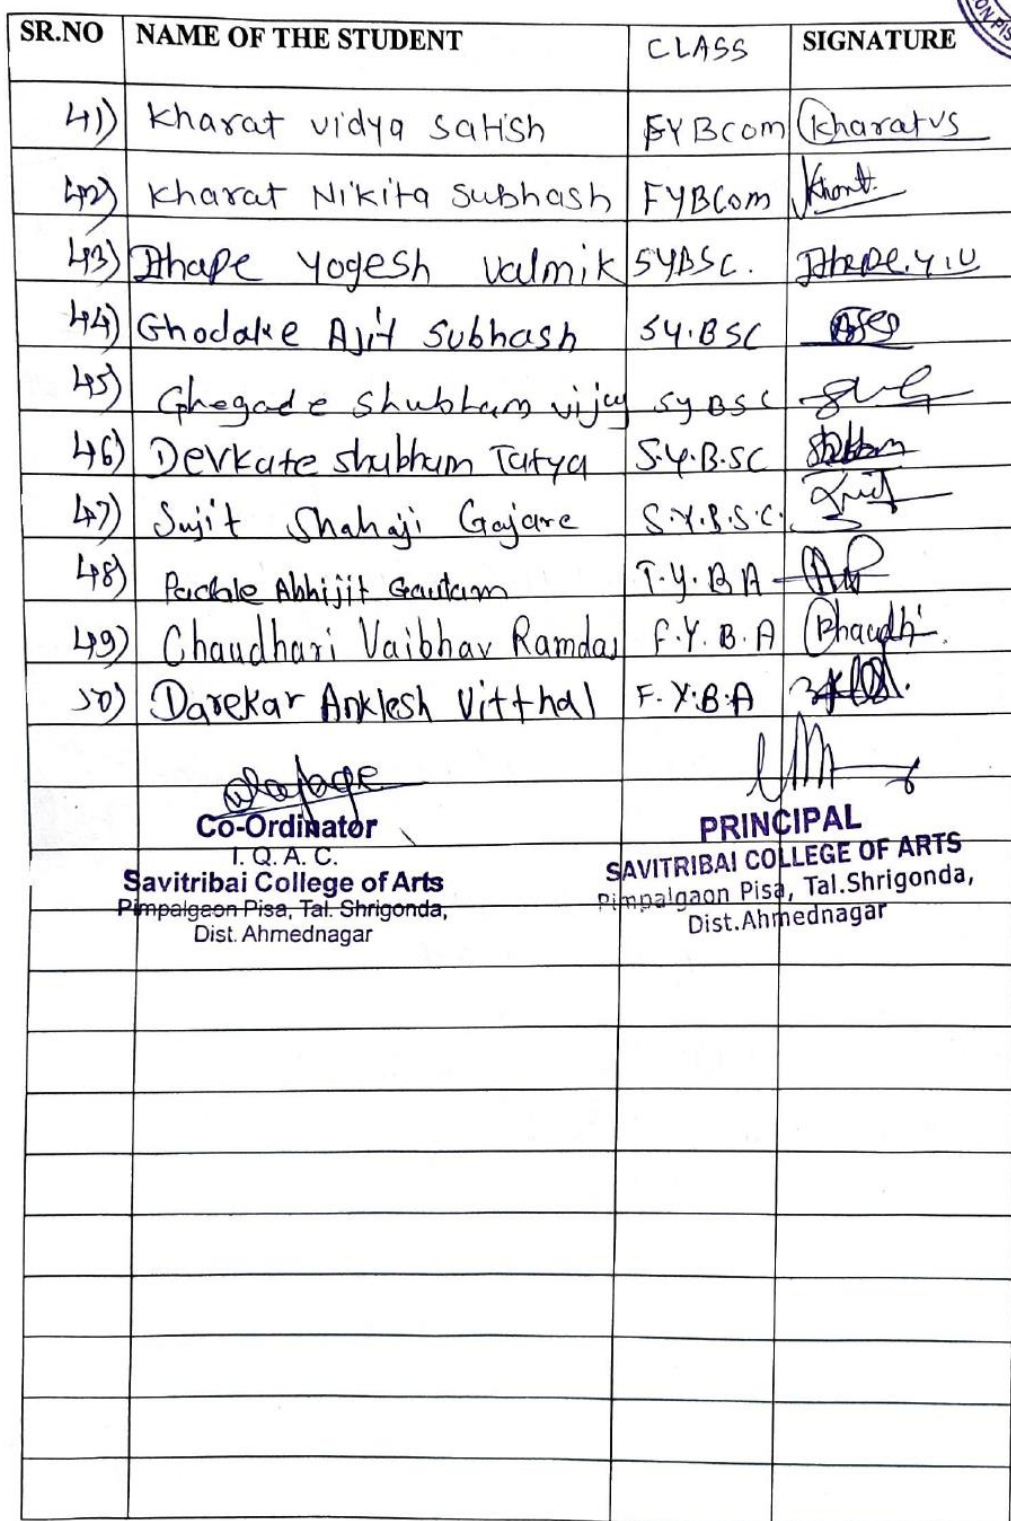 SR.NO NAME OF THE STUDENT CLASS SIGNATURE
41) Kharat vidya Satish FYBCom Kharatvs
42) Kharat Nikita Subhash FYBCom
43) Dhape Yogesh Valmik SYBSC.
44) Ghodake Ajit Subhash SY.BSC
45) Ghegade Shubham vijay SYBSC
46) Devkate Shubham Tatya S.Y.B.SC
47) Sujit Shahaji Gajare S.Y.B.S.C.
48) Abhijit Gautam T.Y.BA
49) Chaudhari Vaibhav Ramdas F.Y.B.A
50) Darekar Anklesh Vitthal F.Y.B.A
Co-Ordinator
I. Q. A. C.
Savitribai College of Arts
Pimpalgaon Pisa, Tal. Shrigonda,
Dist. Ahmednagar
PRINCIPAL
SAVITRIBAI COLLEGE OF ARTS
Pimpalgaon Pisa, Tal.Shrigonda,
Dist.Ahmednagar